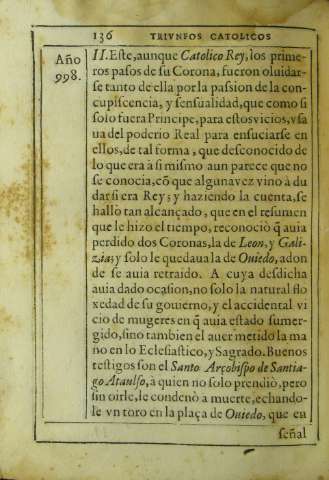 136 TRIVNFOS CATOLICOS
Año
998.
II. Este, aunque Catolico Rey, los prime-
ros pasos de su Corona, fueron oluidar-
se tanto de ella por la passion de la con-
cupiscencia, y sensualidad, que como si
solo fuera Principe, para estos vicios, vsa
ua del poderio Real para ensuciarse en
ellos, de tal forma, que desconocido de
lo que era à si mismo aun parece que no
se conocia, cõ que alguna vez vino à du
dar si era Rey; y haziendo la cuenta, se
hallò tan alcançado, que en el resumen
que le hizo el tiempo, reconociò q̃ auia
perdido dos Coronas, la de Leon, y Gali-
zia; y solo le quedaua la de Ouiedo, adon
de se auia retraido. A cuya desdicha
auia dado ocasion, no solo la natural flo
xedad de su gouierno, y el accidental vi
cio de mugeres en q̃ auia estado sumer-
gido, sino tambien el auer metido la ma
no en lo Eclesiastico, y Sagrado. Buenos
testigos son el Santo Arçobispo de Santia-
go Ataulfo, à quien no solo prendiò, pero
sin oirle, le condenò a muerte, echando-
le vn toro en la plaça de Ouiedo, que en
señal